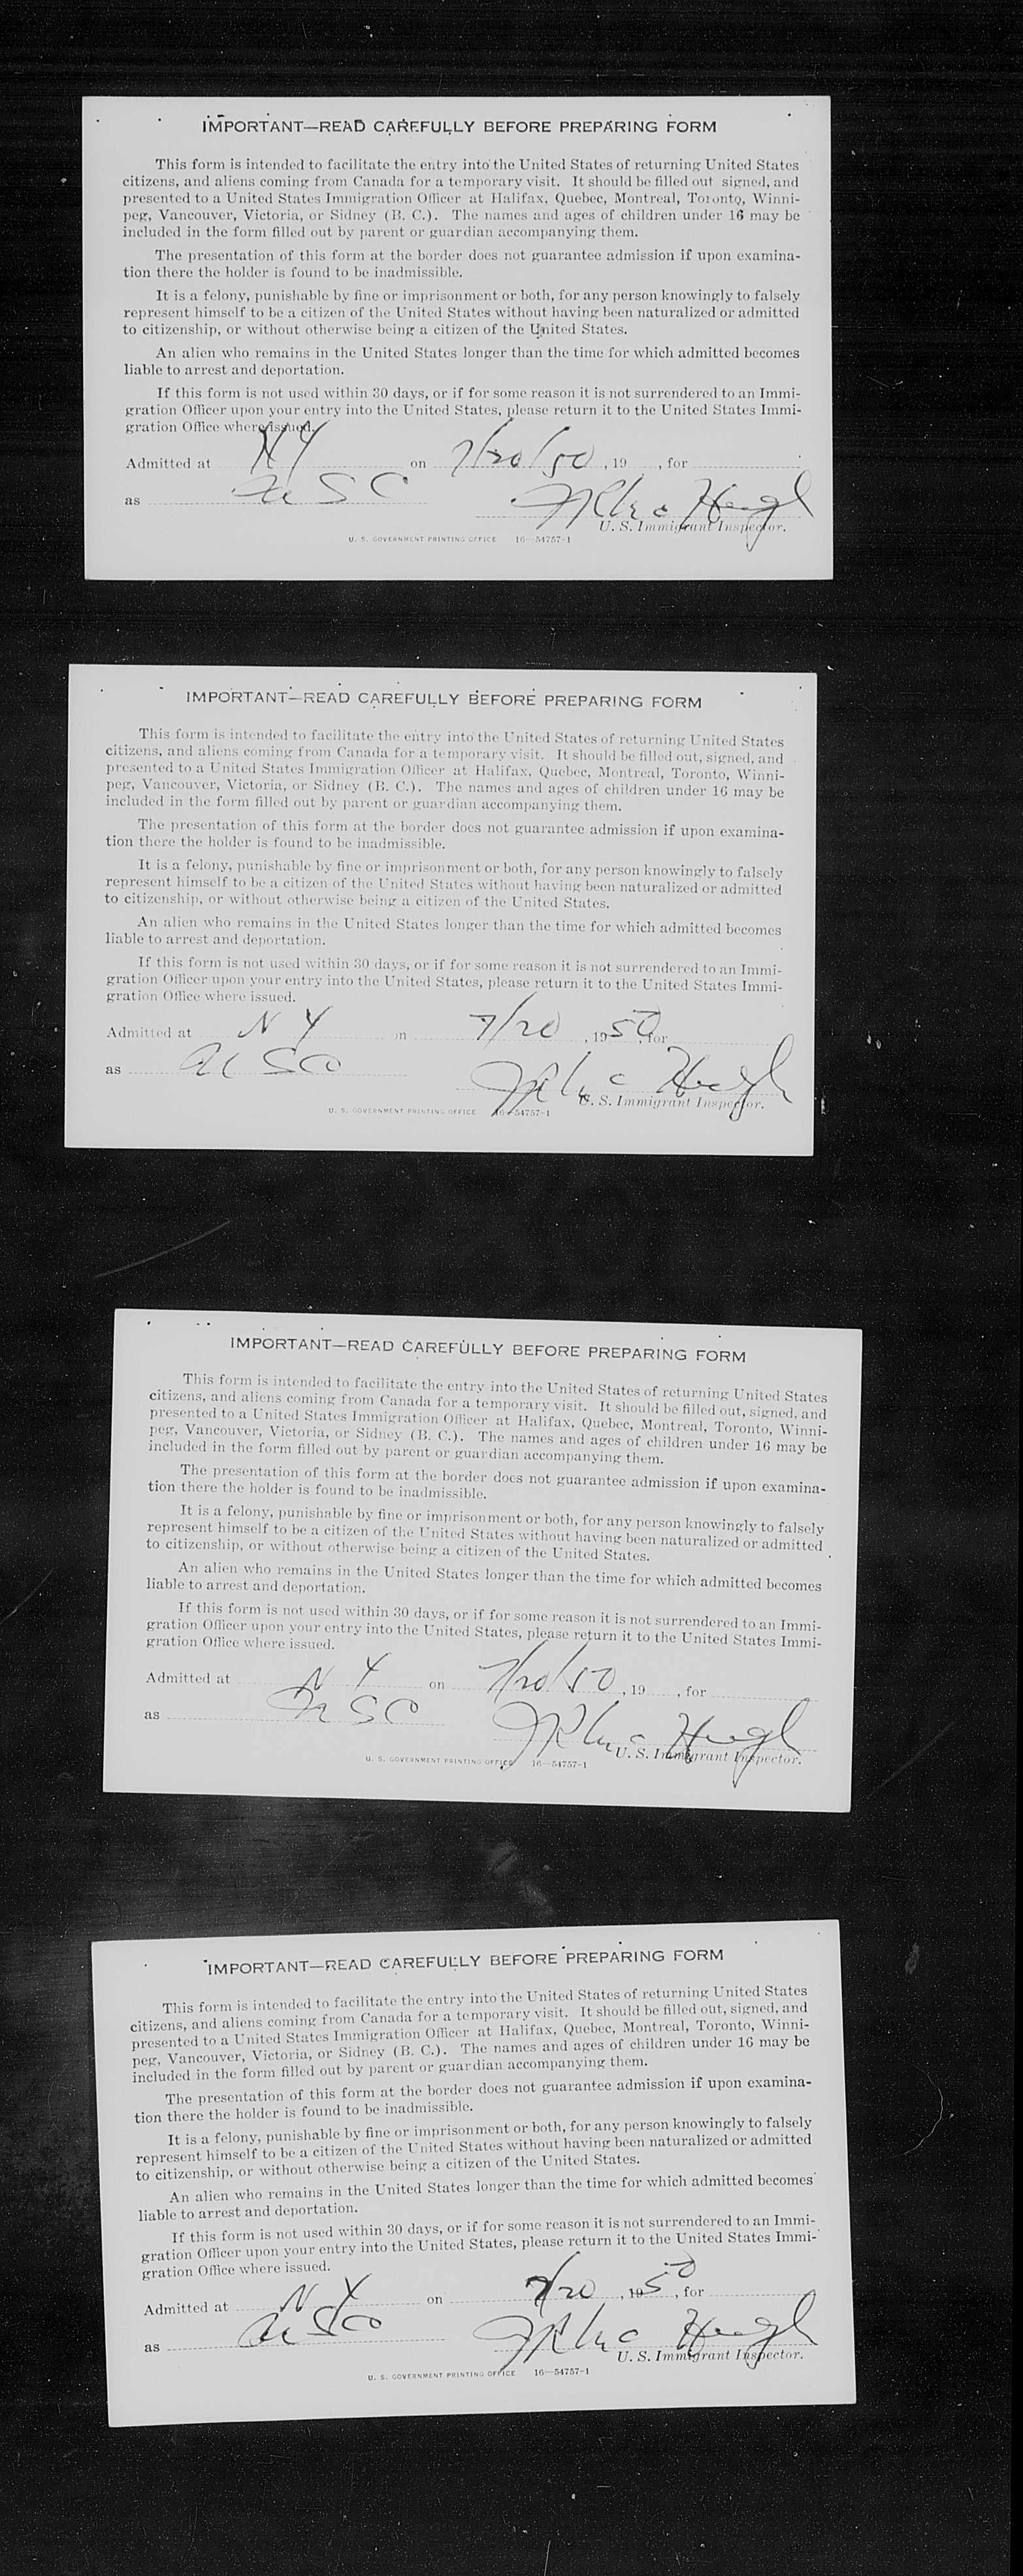 IMPORTANT—READ CAREFULLY BEFORE PREPARING FORM
This form is intended to facilitate the entry into the United States of returning United States
citizens, and aliens coming from Canada for a temporary visit. It should be filled out signed, and
presented to a United States Immigration Officer at Halifax, Quebec, Montreal, Toronto, Winni-
peg, Vancouver, Victoria, or Sidney (B. C.). The names and ages of children under 16 may be
included in the form filled out by parent or guardian accompanying them.
The presentation of this form at the border does not guarantee admission if upon examina-
tion there the holder is found to be inadmissible.
It is a felony, punishable by fine or imprisonment or both, for any person knowingly to falsely
represent himself to be a citizen of the United States without having been naturalized or admitted
to citizenship, or without otherwise being a citizen of the United States.
An alien who remains in the United States longer than the time for which admitted becomes
liable to arrest and deportation.
If this form is not used within 30 days, or if for some reason it is not surrendered to an Immi-
gration Officer upon your entry into the United States, please return it to the United States Immi-
gration Office where issued.
Admitted at NY on 7/20/50, 19 , for
as USC
U. S. Immigrant Inspector.
U. S. GOVERNMENT PRINTING OFFICE 16—54757-1
IMPORTANT—READ CAREFULLY BEFORE PREPARING FORM
This form is intended to facilitate the entry into the United States of returning United States
citizens, and aliens coming from Canada for a temporary visit. It should be filled out, signed, and
presented to a United States Immigration Officer at Halifax, Quebec, Montreal, Toronto, Winni-
peg, Vancouver, Victoria, or Sidney (B. C.). The names and ages of children under 16 may be
included in the form filled out by parent or guardian accompanying them.
The presentation of this form at the border does not guarantee admission if upon examina-
tion there the holder is found to be inadmissible.
It is a felony, punishable by fine or imprisonment or both, for any person knowingly to falsely
represent himself to be a citizen of the United States without having been naturalized or admitted
to citizenship, or without otherwise being a citizen of the United States.
An alien who remains in the United States longer than the time for which admitted becomes
liable to arrest and deportation.
If this form is not used within 30 days, or if for some reason it is not surrendered to an Immi-
gration Officer upon your entry into the United States, please return it to the United States Immi-
gration Office where issued.
Admitted at N Y on 7/20, 1950, for
as USC
U. S. Immigrant Inspector.
U. S. GOVERNMENT PRINTING OFFICE 16—54757-1
IMPORTANT—READ CAREFULLY BEFORE PREPARING FORM
This form is intended to facilitate the entry into the United States of returning United States
citizens, and aliens coming from Canada for a temporary visit. It should be filled out, signed, and
presented to a United States Immigration Officer at Halifax, Quebec, Montreal, Toronto, Winni-
peg, Vancouver, Victoria, or Sidney (B. C.). The names and ages of children under 16 may be
included in the form filled out by parent or guardian accompanying them.
The presentation of this form at the border does not guarantee admission if upon examina-
tion there the holder is found to be inadmissible.
It is a felony, punishable by fine or imprisonment or both, for any person knowingly to falsely
represent himself to be a citizen of the United States without having been naturalized or admitted
to citizenship, or without otherwise being a citizen of the United States.
An alien who remains in the United States longer than the time for which admitted becomes
liable to arrest and deportation.
If this form is not used within 30 days, or if for some reason it is not surrendered to an Immi-
gration Officer upon your entry into the United States, please return it to the United States Immi-
gration Office where issued.
Admitted at N Y on 7/20/50, 19 , for
as USC
U. S. Immigrant Inspector.
U. S. GOVERNMENT PRINTING OFFICE 16—54757-1
IMPORTANT—READ CAREFULLY BEFORE PREPARING FORM
This form is intended to facilitate the entry into the United States of returning United States
citizens, and aliens coming from Canada for a temporary visit. It should be filled out, signed, and
presented to a United States Immigration Officer at Halifax, Quebec, Montreal, Toronto, Winni-
peg, Vancouver, Victoria, or Sidney (B. C.). The names and ages of children under 16 may be
included in the form filled out by parent or guardian accompanying them.
The presentation of this form at the border does not guarantee admission if upon examina-
tion there the holder is found to be inadmissible.
It is a felony, punishable by fine or imprisonment or both, for any person knowingly to falsely
represent himself to be a citizen of the United States without having been naturalized or admitted
to citizenship, or without otherwise being a citizen of the United States.
An alien who remains in the United States longer than the time for which admitted becomes
liable to arrest and deportation.
If this form is not used within 30 days, or if for some reason it is not surrendered to an Immi-
gration Officer upon your entry into the United States, please return it to the United States Immi-
gration Office where issued.
Admitted at N Y on 7/20, 1950, for
as USC
U. S. Immigrant Inspector.
U. S. GOVERNMENT PRINTING OFFICE 16—54757-1